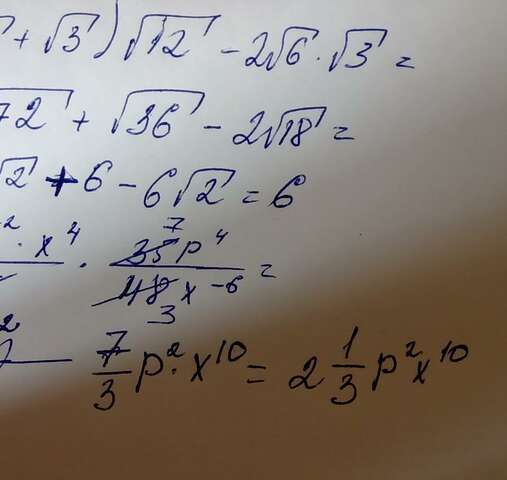 + √3) √12 - 2√6 · √3 =
72 + √36 - 2√18 =
√2 + 6 - 6√2 = 6
² · x⁴ / · 35p⁴ 7 / 48x⁻⁶ 3 =
2 — 7/3 p² · x¹⁰ = 2 1/3 p² x¹⁰